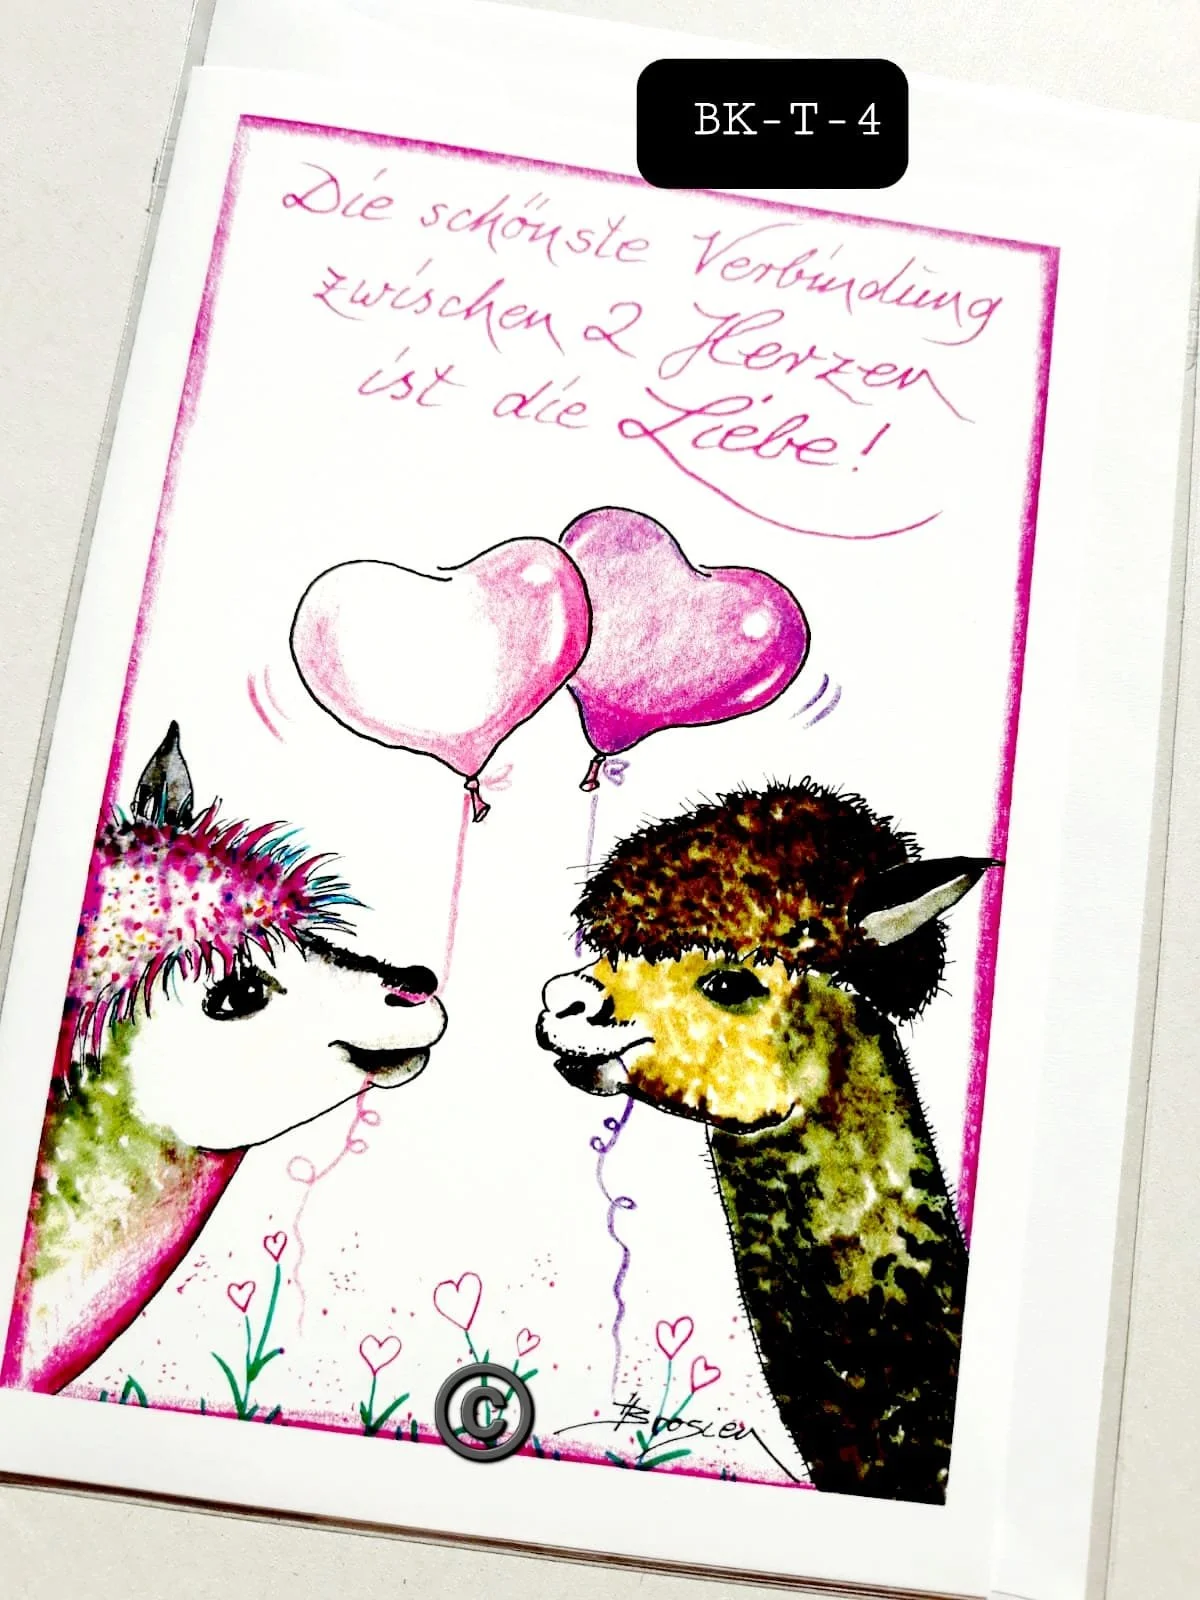 BK-T-4
Die schönste Verbindung
zwischen 2 Herzen
ist die Liebe!
©